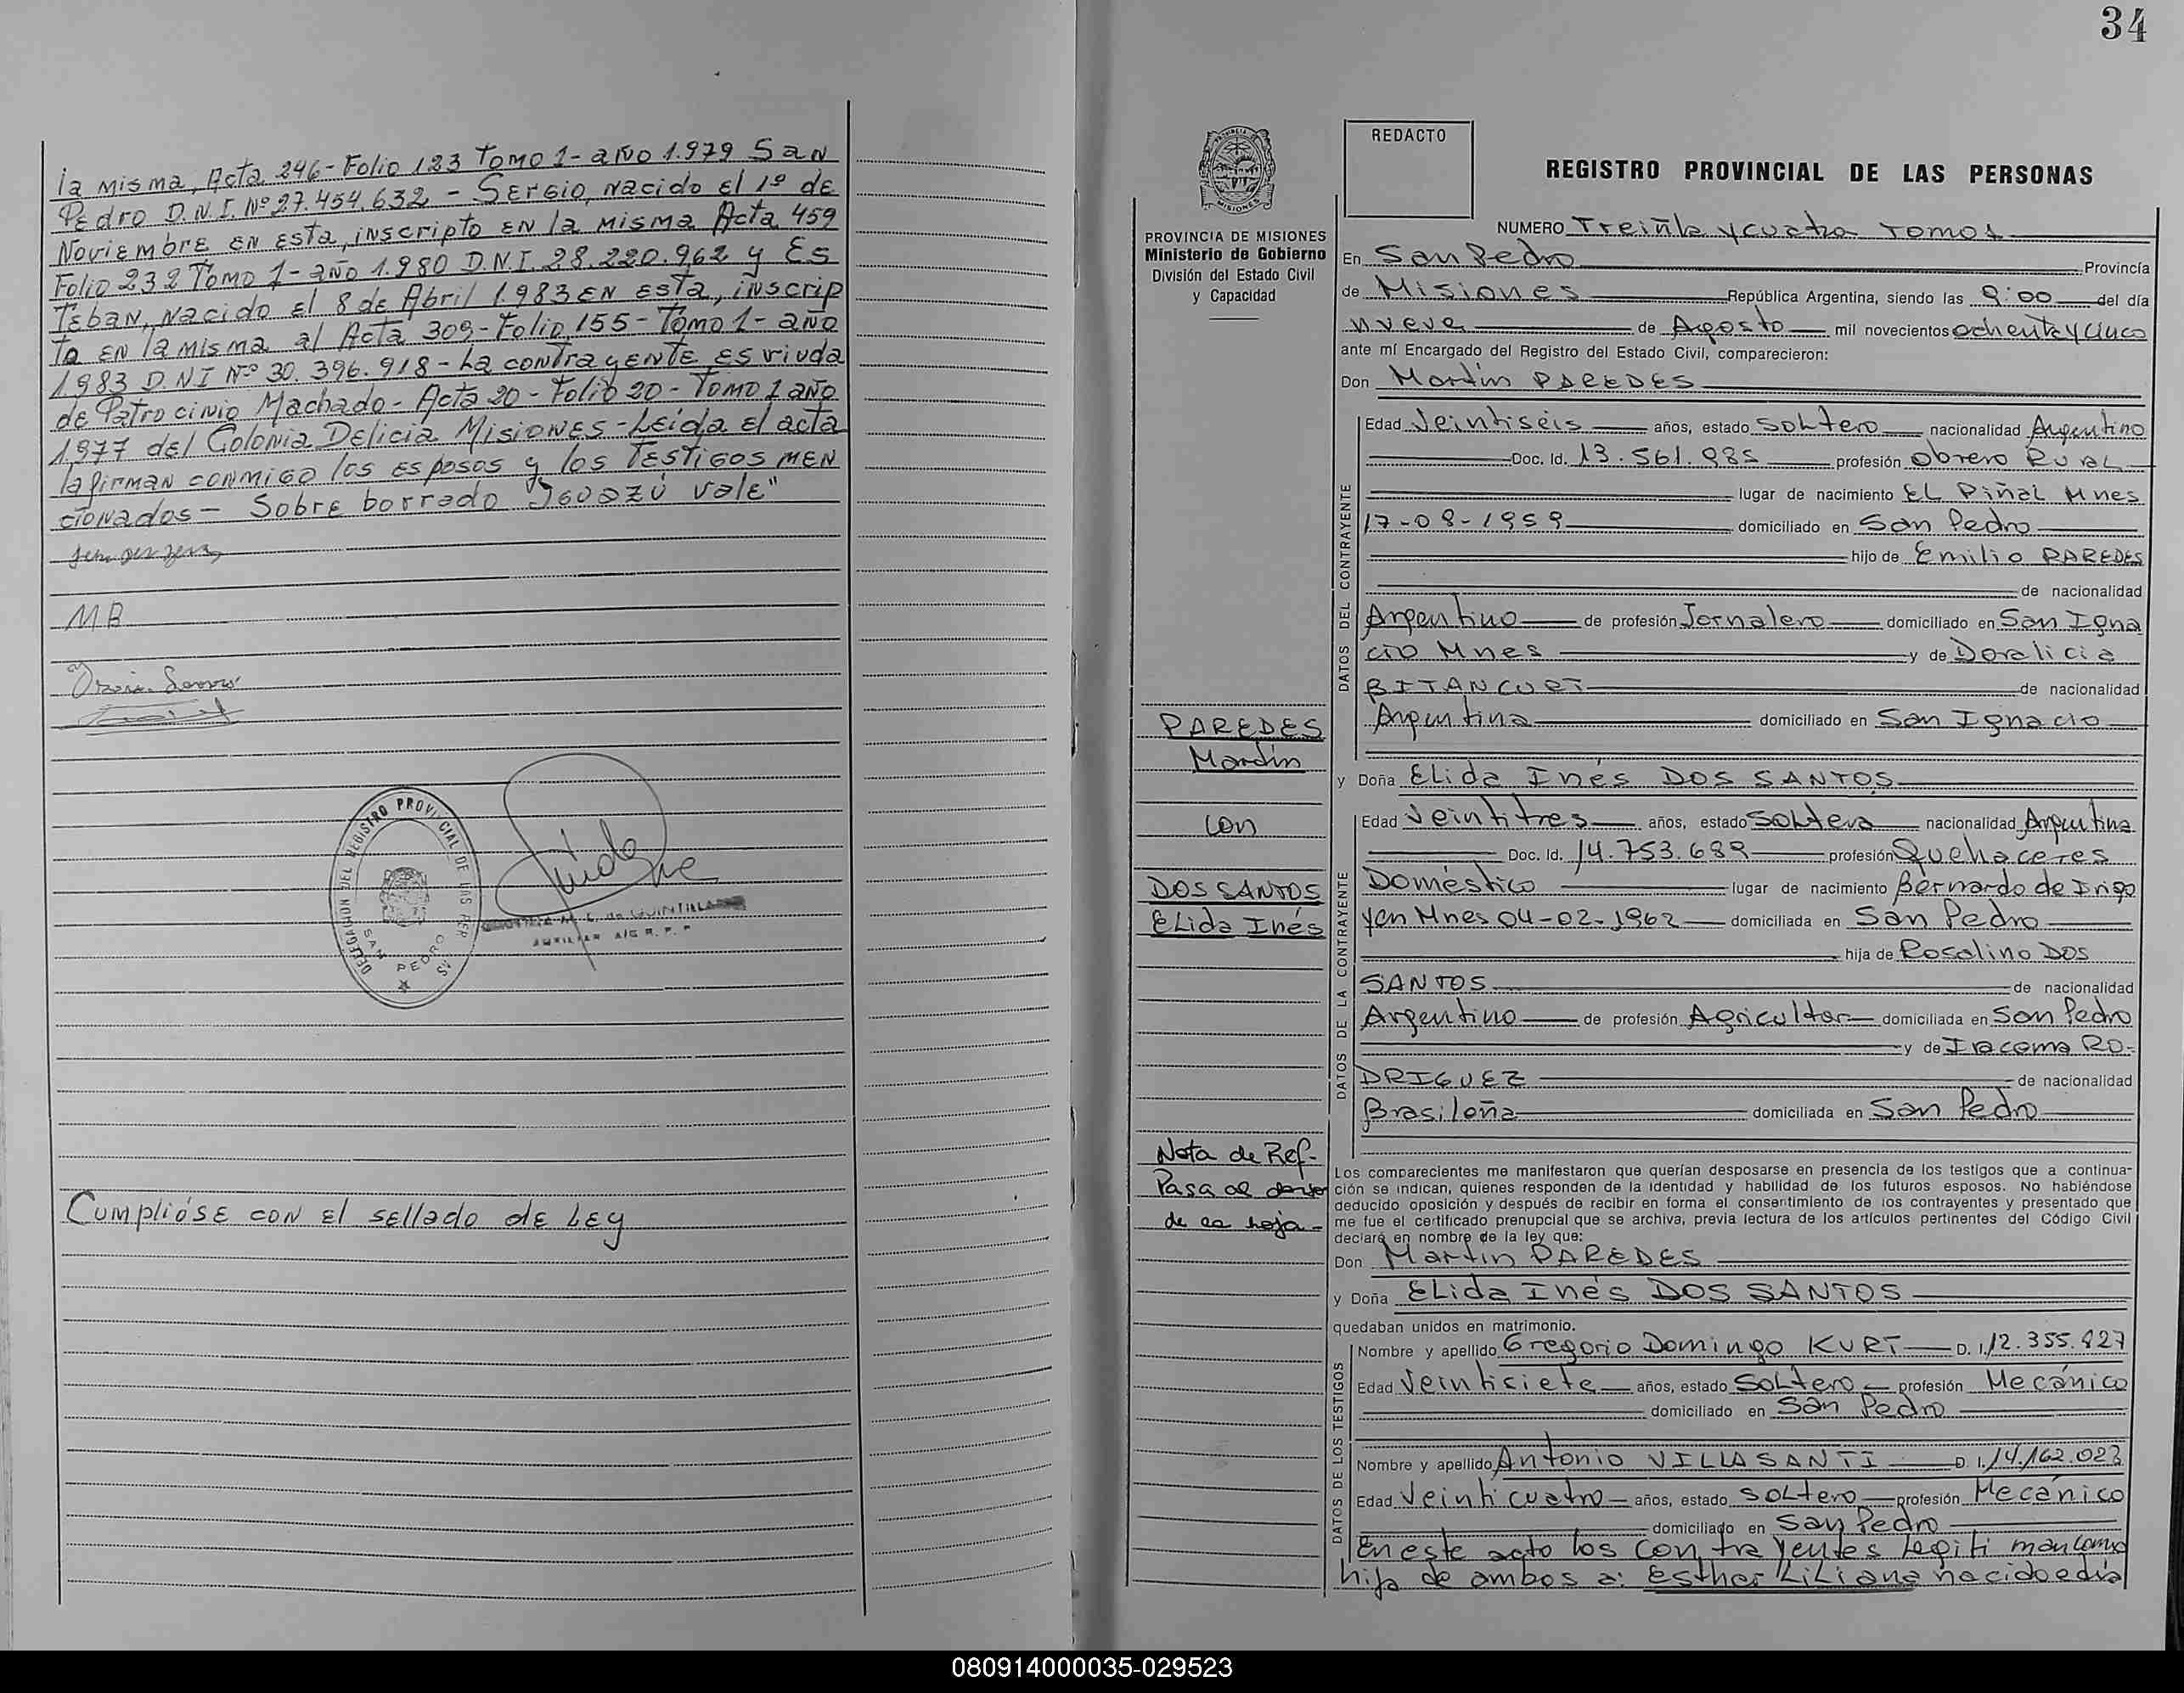 la misma, Acta 246-Folio 123 Tomo 1-año 1.979 San
Pedro D.N.I. Nº 27.454.632 - Sergio, nacido el 1º de
Noviembre en esta, inscripto en la misma Acta 459
Folio 232 Tomo 1-año 1.980 D.N.I. 28.220.962 y Es
teban, nacido el 8 de Abril 1.983 en esta, inscrip
to en la misma al Acta 309-Folio 155-Tomo 1-año
1.983 D.N.I Nº 30.396.918-La contrayente es viuda
de Patrocinio Machado-Acta 20-Folio 20-Tomo 1 año
1.977 del Colonia Delicia Misiones-Leída el acta
la firman conmigo los esposos y los testigos men
cionados- Sobre borrado "Iguazú vale"
MB
DELEGACION DEL REGISTRO PROVINCIAL DE LAS PER
SAN PEDRO
M. L. de QUINTILLA
AUXILIAR A/C R. P. P
Cumplióse con el sellado de Ley
34
REDACTO
REGISTRO PROVINCIAL DE LAS PERSONAS
PROVINCIA DE MISIONES
Ministerio de Gobierno
División del Estado Civil
y Capacidad
NUMERO Treinta y cuatro Tomo 1
En San Pedro Provincia
de Misiones República Argentina, siendo las 9:00 del día
nueve de Agosto mil novecientos ochenta y cinco
ante mí Encargado del Registro del Estado Civil, comparecieron:
Don Martín PAREDES
DATOS DEL CONTRAYENTE
Edad Veintiséis años, estado Soltero nacionalidad Argentino
Doc. Id. 13.561.985 profesión Obrero Rural
lugar de nacimiento El Piñal Mnes
17-08-1959 domiciliado en San Pedro
hijo de Emilio PAREDES
de nacionalidad
Argentino de profesión Jornalero domiciliado en San Igna
cio Mnes y de Doralicia
BITANCURT de nacionalidad
Argentina domiciliado en San Ignacio
PAREDES
Martín
con
DOS SANTOS
Elida Inés
y Doña Elida Inés DOS SANTOS
DATOS DE LA CONTRAYENTE
Edad Veintitres años, estado Soltera nacionalidad Argentina
Doc. Id. 14.753.689 profesión Quehaceres
Doméstico lugar de nacimiento Bernardo de Irigo
yen Mnes 04-02-1962 domiciliada en San Pedro
hija de Rosalino DOS
SANTOS de nacionalidad
Argentino de profesión Agricultor domiciliada en San Pedro
y de Iracema RO-
DRIGUEZ de nacionalidad
Brasileña domiciliada en San Pedro
Nota de Ref-
Pasa al dorso
de la hoja-
Los comparecientes me manifestaron que querían desposarse en presencia de los testigos que a continua-
ción se indican, quienes responden de la identidad y habilidad de los futuros esposos. No habiéndose
deducido oposición y después de recibir en forma el consentimiento de los contrayentes y presentado que
me fue el certificado prenupcial que se archiva, previa lectura de los artículos pertinentes del Código Civil
declaré en nombre de la ley que:
Don Martín PAREDES
y Doña Elida Inés DOS SANTOS
quedaban unidos en matrimonio.
DATOS DE LOS TESTIGOS
Nombre y apellido Gregorio Domingo KURT D. I. 12.355.827
Edad Veintisiete años, estado Soltero profesión Mecánico
domiciliado en San Pedro
Nombre y apellido Antonio VILLASANTI D. I. 14.162.023
Edad Veinticuatro años, estado soltero profesión Mecánico
domiciliado en San Pedro
En este acto los contrayentes legitiman como
hija de ambos a: Esther Liliana nacida el día
080914000035-029523